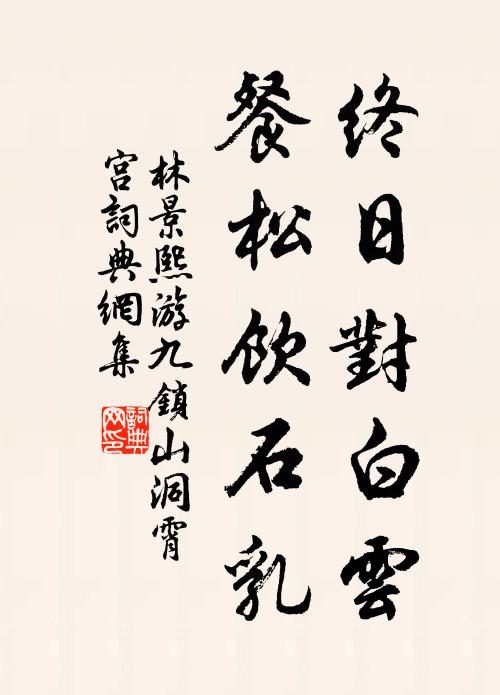 終日對白雲
餐松飲石乳
林景熙游九鎖山洞霄
宮詞典網集
詞典
网印